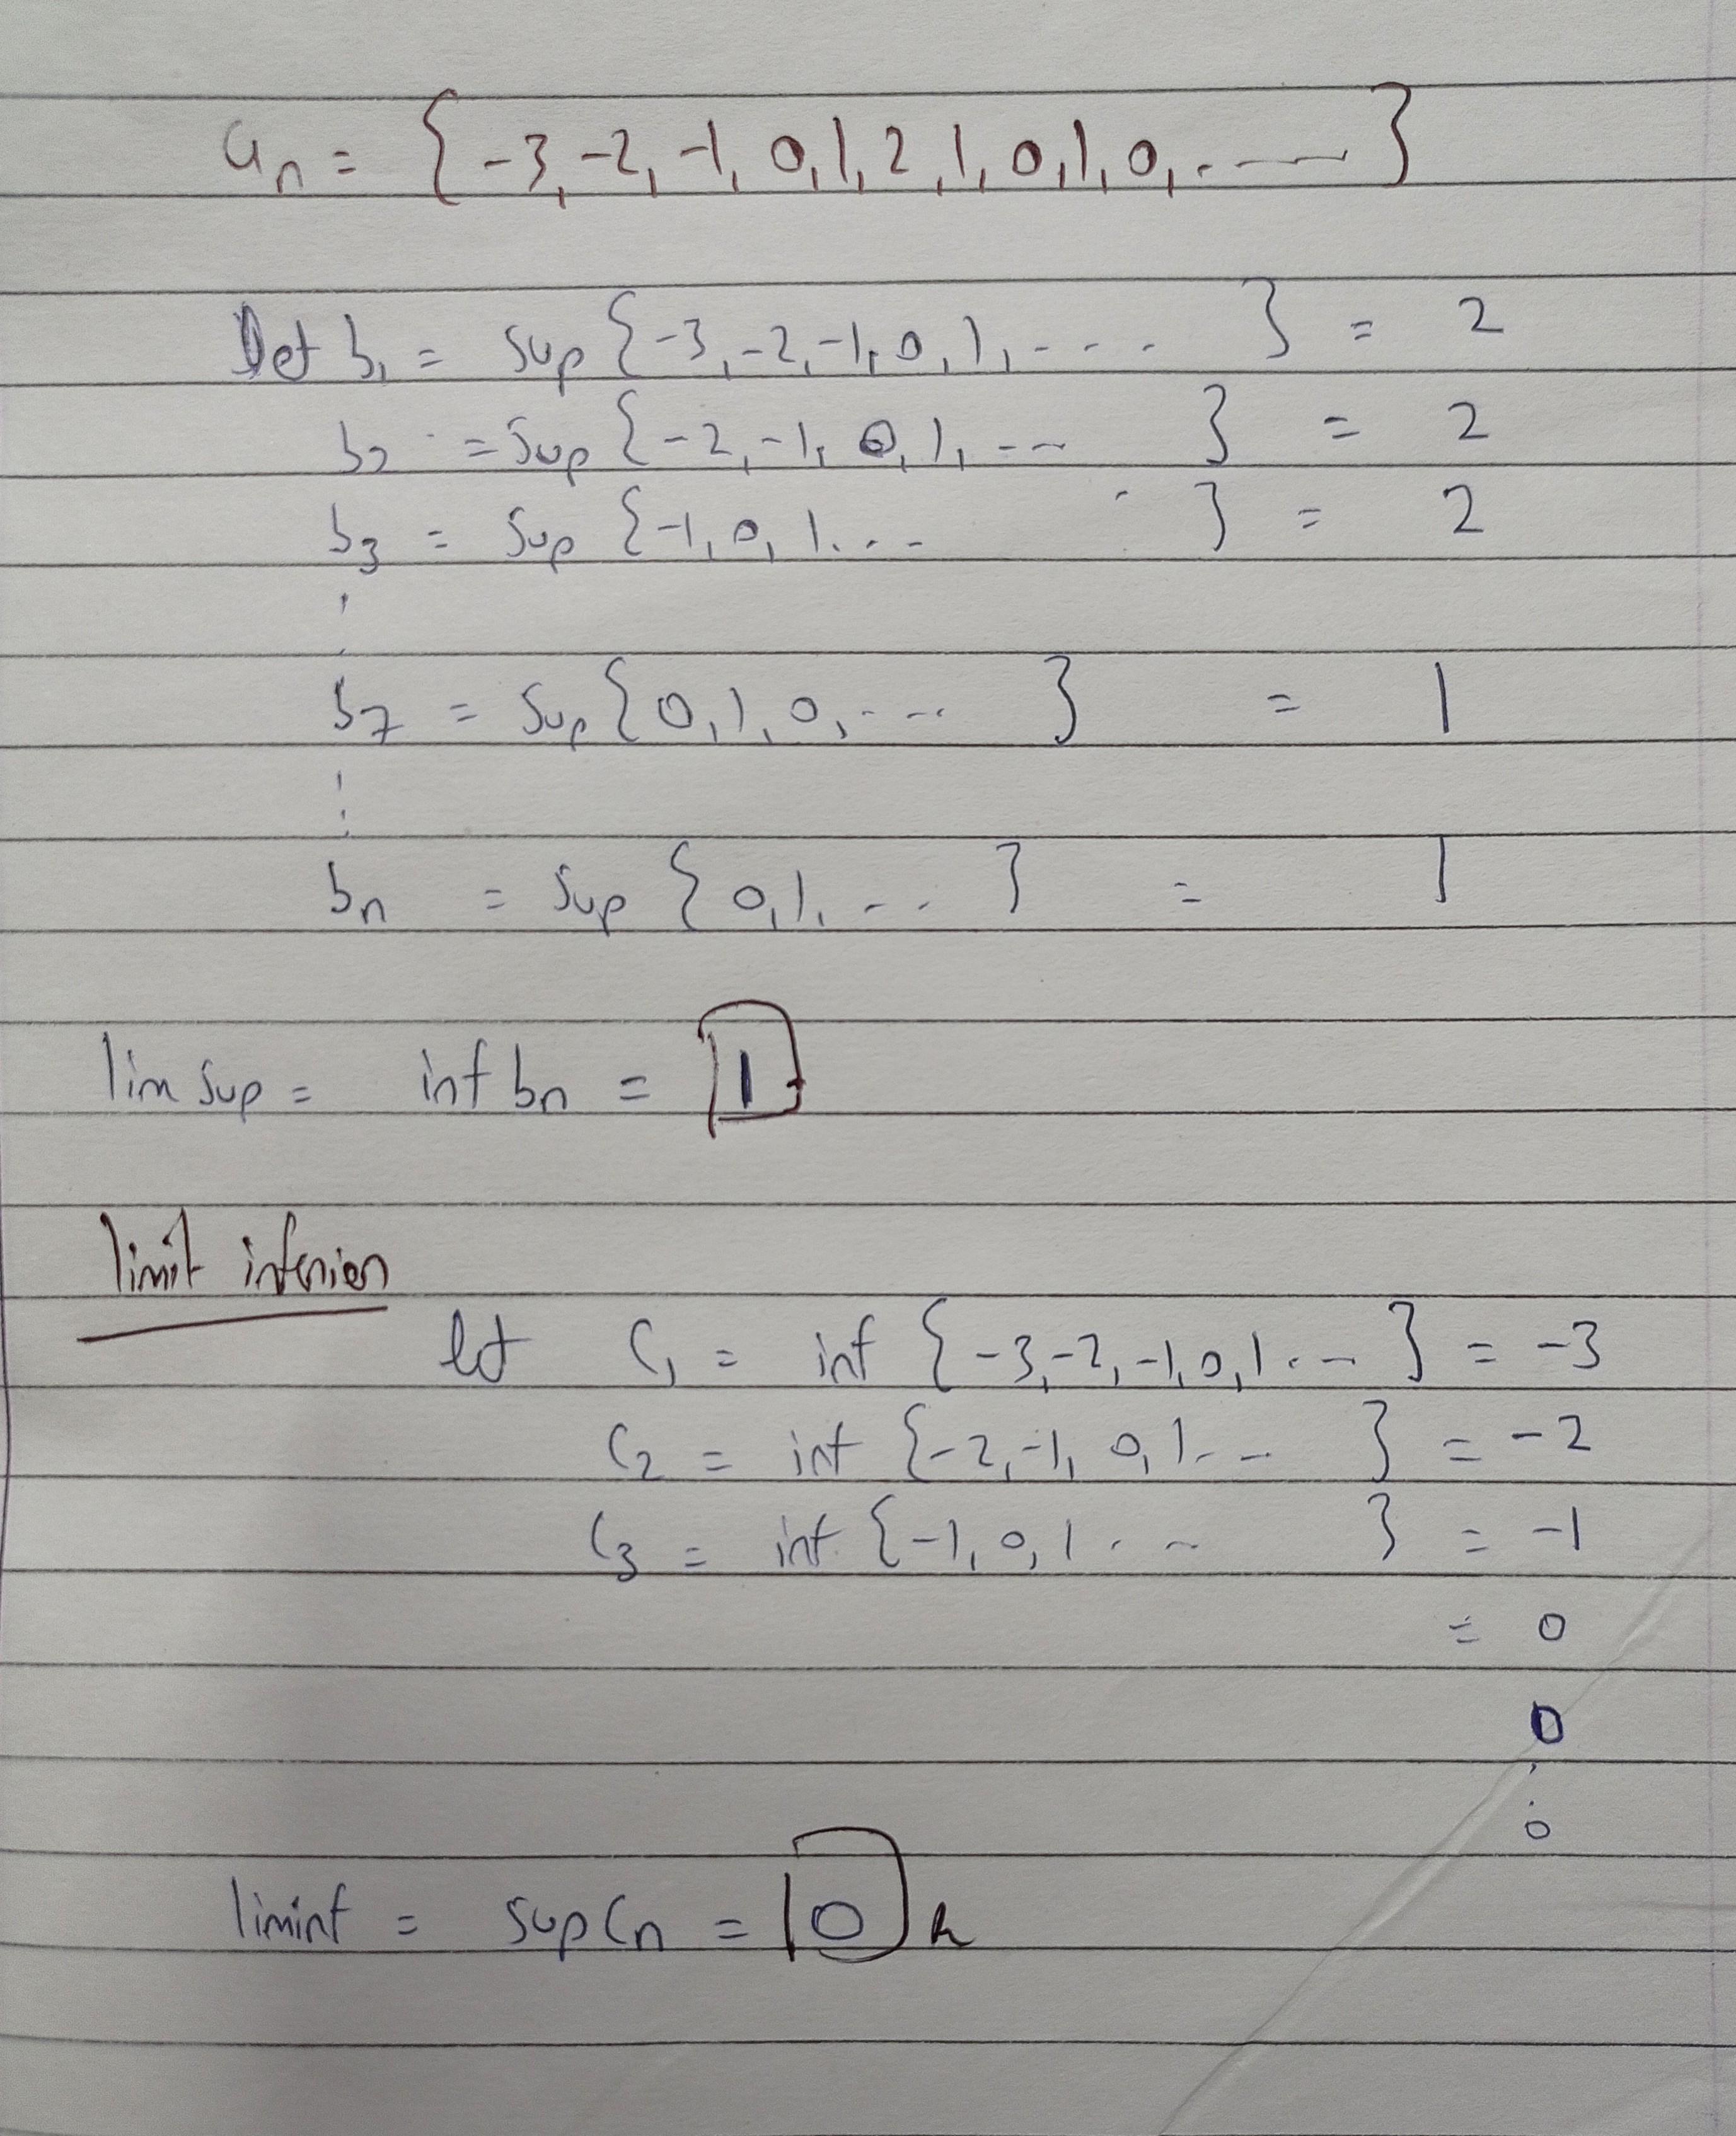 an = { -3, -2, -1, 0, 1, 2, 1, 0, 1, 0, . —— }
Let b1 = sup { -3, -2, -1, 0, 1, - - - . } = 2
b2 = sup { -2, -1, 0, 1, - -- } = 2
b3 = sup { -1, 0, 1. . - } = 2
b7 = sup { 0, 1, 0, - -- } = 1
bn = sup { 0, 1, - - . } = 1
lim sup = inf bn = 1
limit inferior
let C1 = inf { -3, -2, -1, 0, 1 . -- } = -3
C2 = inf { -2, -1, 0, 1 - -- } = -2
C3 = inf { -1, 0, 1 . -- } = -1
= 0
0
0
liminf = sup Cn = 0